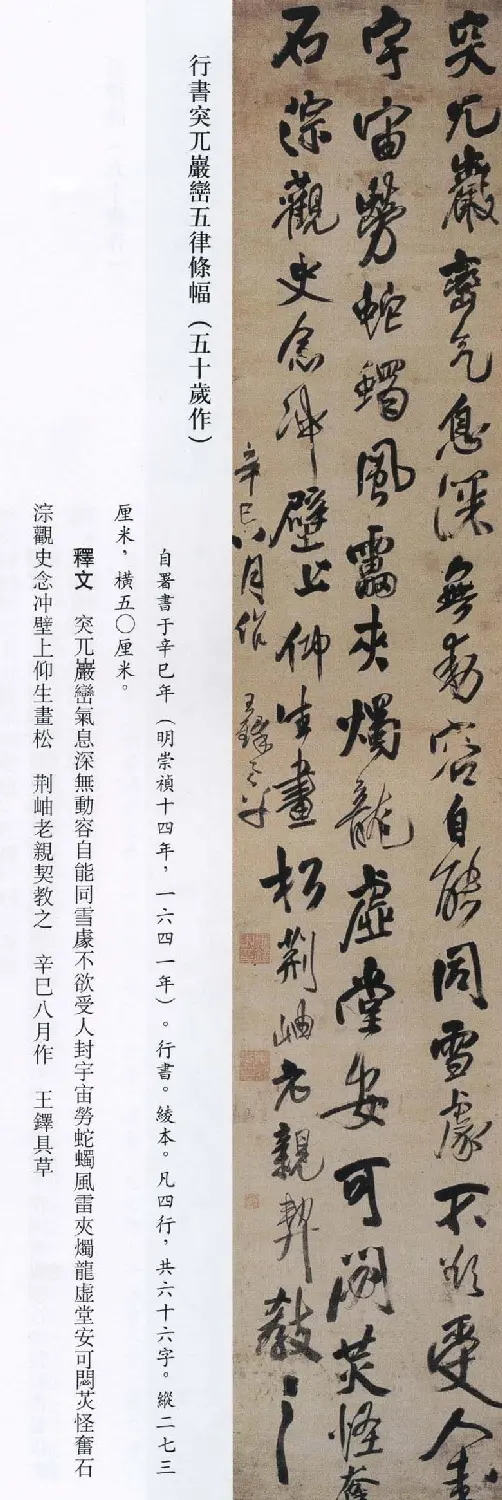 突兀巖巒气息深無動容自能同雪豦不欲受人封
宇宙勞蛇蠋風雷夾燭龍虛堂安可閟炗怪奮
石淙觀史念冲壁上仰生畫松荆岫老親契教之
辛巳八月作 王鐸具草
行書突兀巖巒五律條幅（五十歲作）
自署書于辛巳年（明崇禎十四年，一六四一年）。行書。綾本。凡四行，共六十六字。縱二七三
厘米，橫五〇厘米。
釋文 突兀巖巒氣息深無動容自能同雪豦不欲受人封宇宙勞蛇蠋風雷夾燭龍虛堂安可閟炗怪奮石
淙觀史念冲壁上仰生畫松 荆岫老親契教之 辛巳八月作 王鐸具草